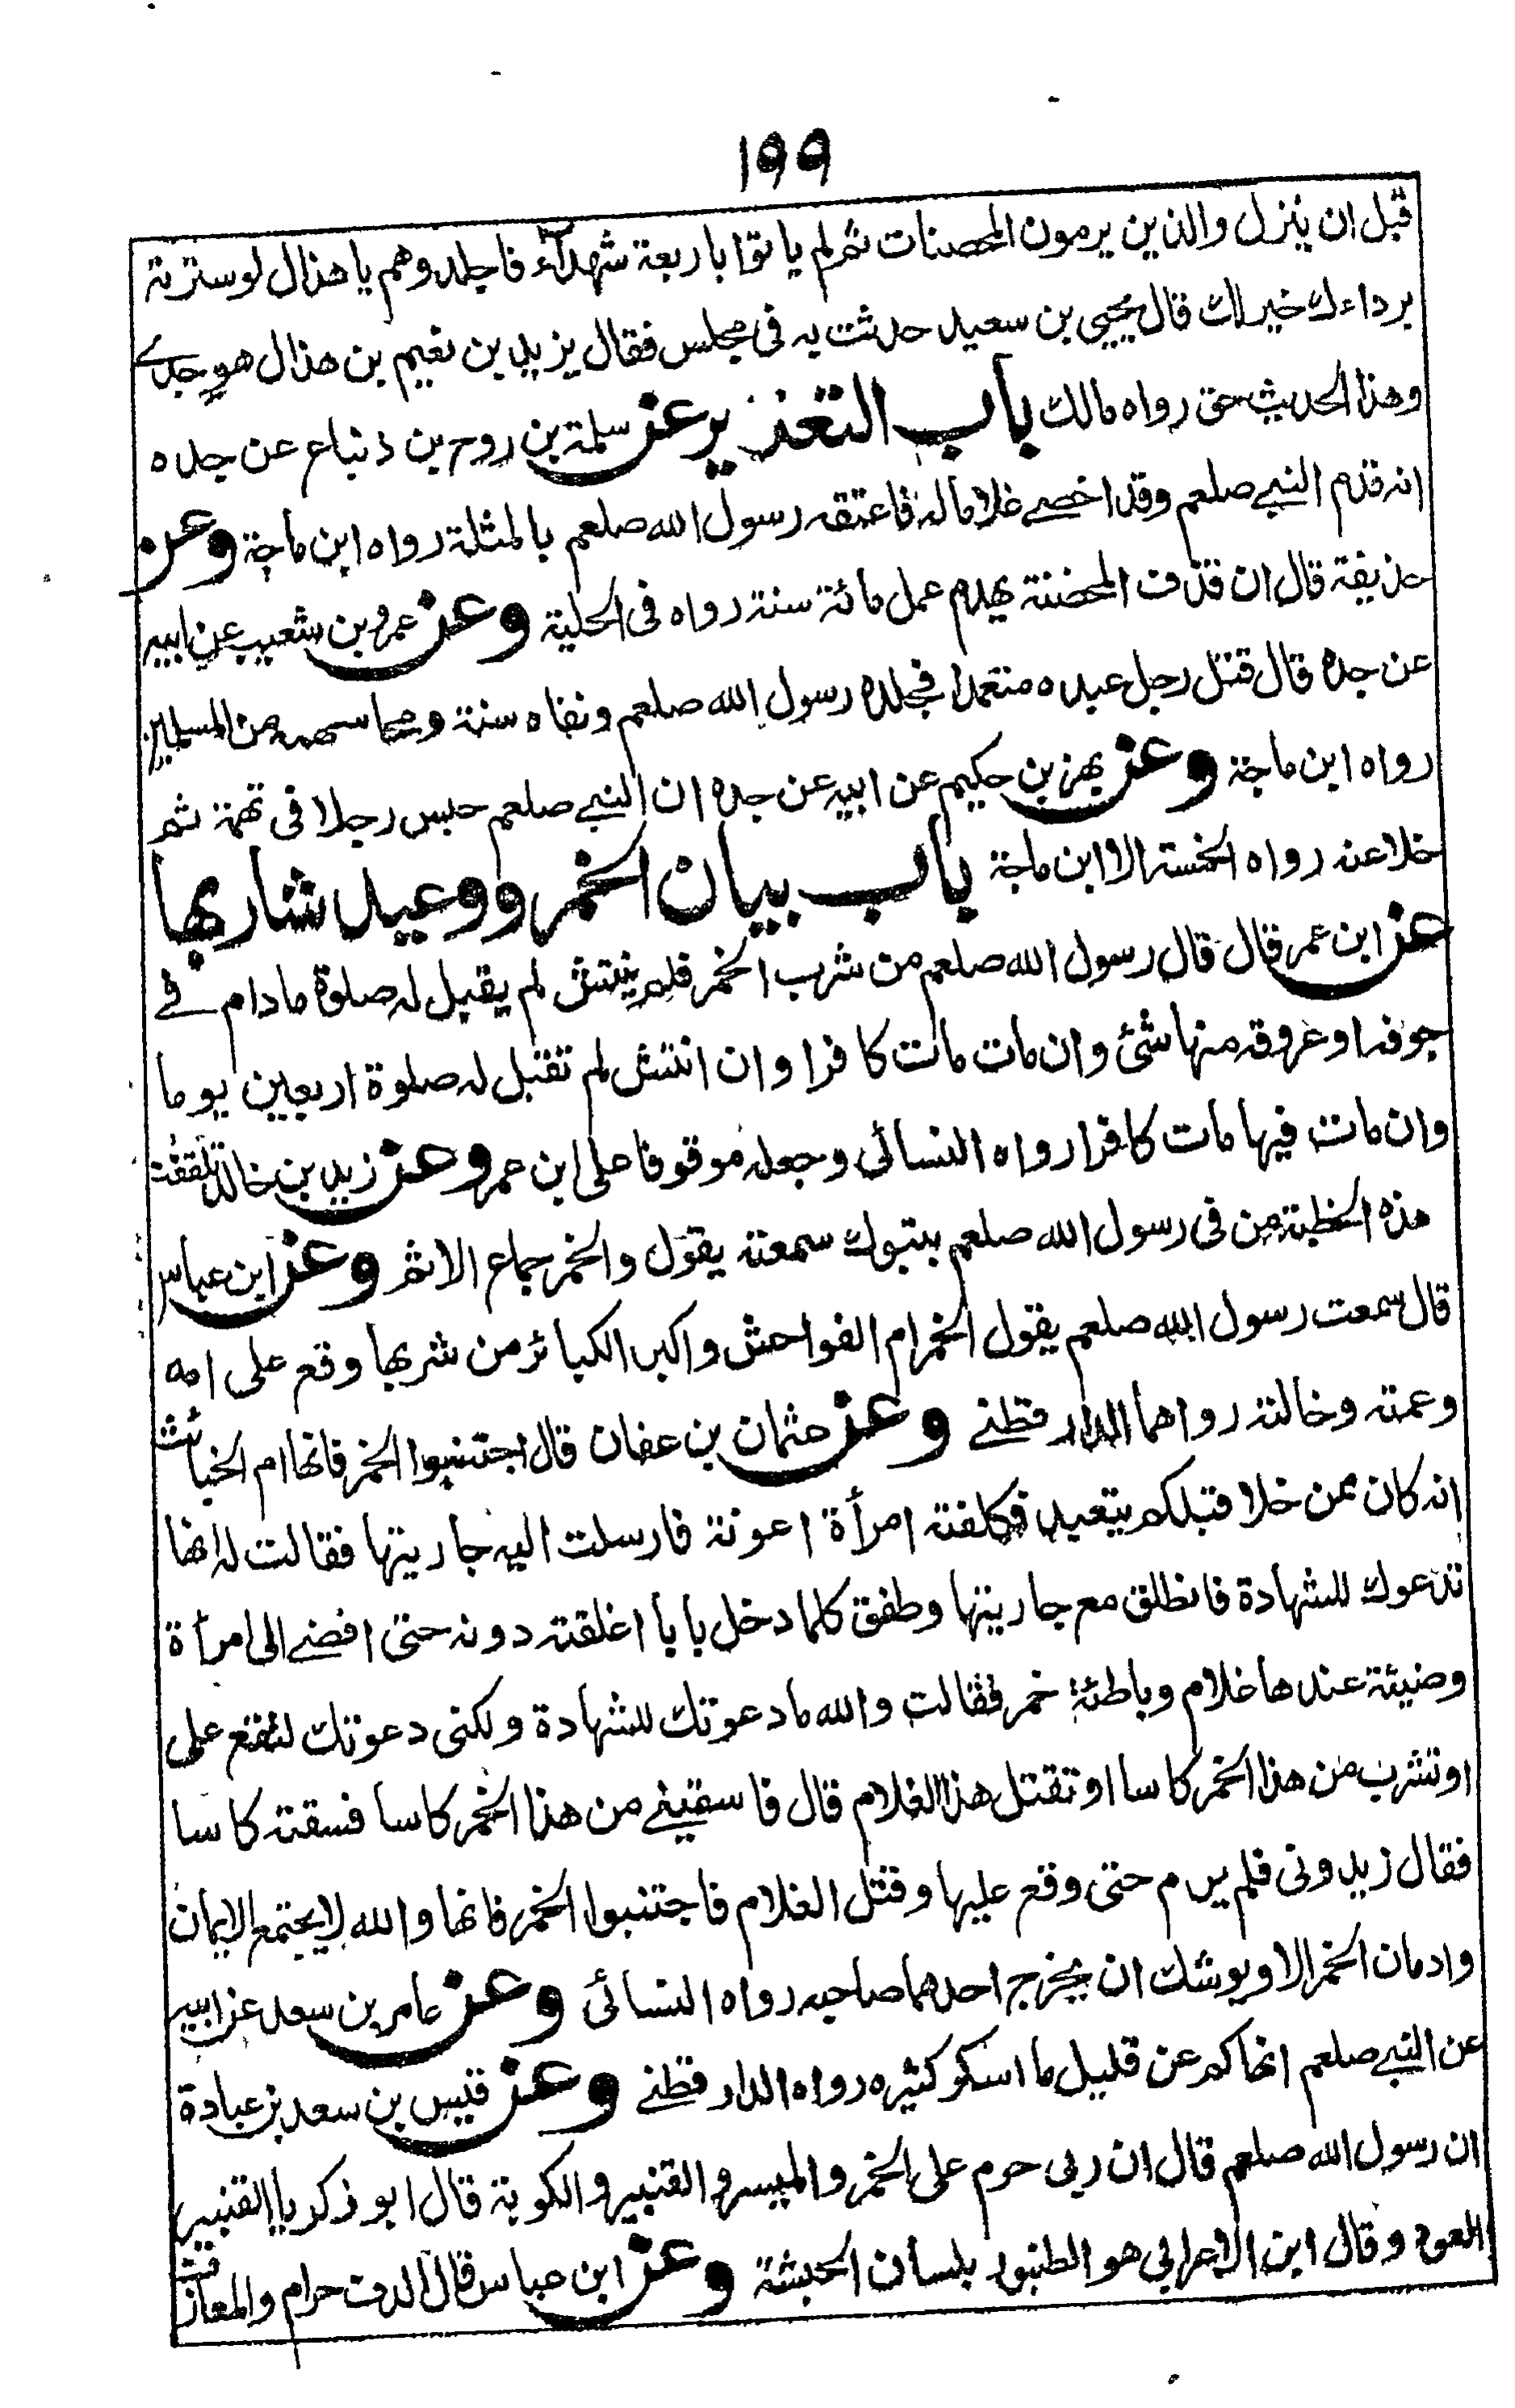 ١٩٩
قبل ان ينزل والذين يرمون المحصنات ثم لم ياتوا باربعة شهدآء فاجلدوهم يا هذال لو سترته
برداءك خير لك قال يحيى بن سعيد حدثت به فى مجلس فقال يزيد بن نعيم بن هذال هو جدے
وهذا الحديث حق رواه مالك باب التعذير عن سلمة بن روح بن ذنباع عن جده
انه قدم النبے صلعم وقد اخصے غلاما له فاعتقه رسول الله صلعم بالمثلة رواه ابن ماجة وعن
حذيفة قال ان قذف المحضنة يهدم عمل مائة سنة رواه فى الحلية وعن عمرو بن شعيب عن ابيه
عن جده قال قتل رجل عبده متعمدا فجلده رسول الله صلعم ونفاه سنة ومحا سهمه من المسلمين
رواه ابن ماجة وعن بهز بن حكيم عن ابيه عن جده ان النبے صلعم حبس رجلا فى تهمة ثم
خلا عنه رواه الخمسة الا ابن ماجة باب بيان الخمر ووعيد شاربها
عن ابن عمر قال قال رسول الله صلعم من شرب الخمر فلم ينتش لم يقبل له صلوة مادام فے
جوفه او عروقه منها شئ وان مات مات كافرا وان انتش لم تقبل له صلوة اربعين يوما
وان مات فيها مات كافرا رواه النسائى وجعله موقوفا على ابن عمر وعن زيد بن خالد تلقفت
هذه الخطبة من فى رسول الله صلعم بتبوك سمعته يقول والخمر جماع الاثم وعن ابن عباس
قال سمعت رسول الله صلعم يقول الخمر ام الفواحش واكبر الكبائر من شربها وقع على امه
وعمته وخالته رواهما الدار قطنے وعن عثمان بن عفان قال اجتنبوا الخمر فانها ام الخبائث
انه كان ممن خلا قبلكم يتعبد فكلفته امرأة اغوتة فارسلت اليه جاريتها فقالت له انها
تدعوك للشهادة فانطلق مع جاريتها وطفق كلما دخل بابا اغلقته دونه حتى افضے الى امرأة
وضيئة عندها غلام وباطئة خمر فقالت والله ما دعوتك للشهادة ولكنى دعوتك لتقع على
او تشرب من هذا الخمر كاسا او تقتل هذا الغلام قال فاسقينے من هذا الخمر كاسا فسقته كاسا
فقال زيدونى فلم يرم حتى وقع عليها وقتل الغلام فاجتنبوا الخمر فانها والله لا يجتمع الايمان
وادمان الخمر الا ويوشك ان يخرج احدهما صاحبه رواه النسائى وعن عامر بن سعد عن ابيه
عن النبے صلعم انهاكم عن قليل ما اسكر كثيره رواه الدار قطنے وعن قيس بن سعد بن عبادة
ان رسول الله صلعم قال ان ربى حرم على الخمر والميسر والقنبير والكوبة قال ابو ذكريا القنبير
العود وقال ابن الاعرابي هو الطنبور بلسان الحبشة وعن ابن عباس قال الدف حرام والمعازف